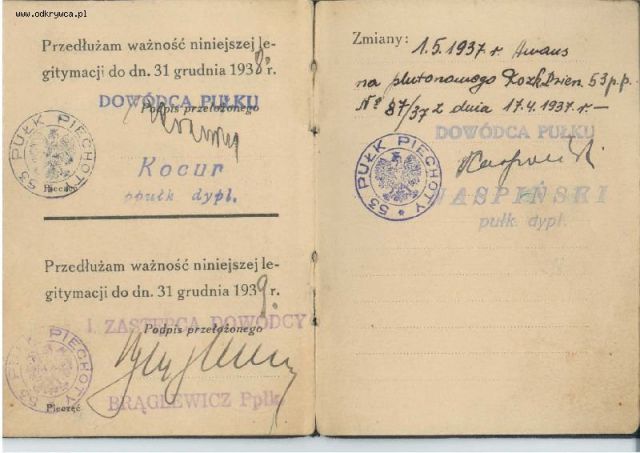 www.odkrywca.pl
Przedłużam ważność niniejszej le-
gitymacji do dn. 31 grudnia 1938 r.
DOWÓDCA PUŁKU
Podpis przełożonego
53 PUŁK PIECHOTY
Pieczęć
Kocur
ppułk dypl.
Przedłużam ważność niniejszej le-
gitymacji do dn. 31 grudnia 1939 r.
I. ZASTĘPCA DOWÓDCY
Podpis przełożonego
53 PUŁK PIECHOTY
Pieczęć
BRĄGLEWICZ Ppłk.
Zmiany: 1.5.1937 r. Awans
na plutonowego Rozk. Dzien. 53 p.p.
№ 87/37 z dnia 17.4.1937 r. —
DOWÓDCA PUŁKU
53 PUŁK PIECHOTY
WASPIŃSKI
pułk. dypl.